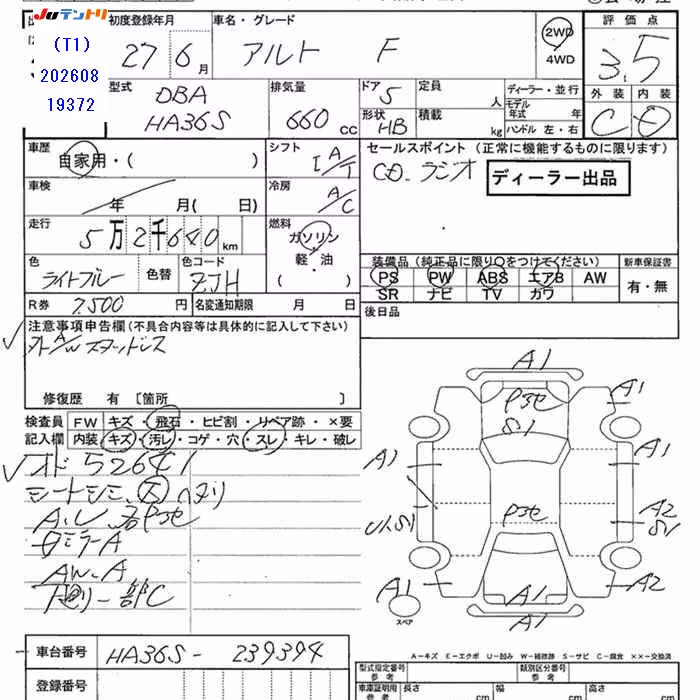 JUテントリ
(T1)
202608
19372
初度登録年月
27 6月
車名・グレード
アルト F
2WD
4WD
評価点
3.5
外装 内装
C D
型式
DBA
HA36S
排気量
660 CC
ドア 5
形状 HB
定員 人
積載 kg
ディーラー・並行
モデル年式 年
ハンドル 左・右
車歴
自家用・( )
シフト
I A/T
セールスポイント (正常に機能するものに限ります)
CD、ラジオ
ディーラー出品
車検
年 月( 日)
冷房
A/C
走行
5万2千640km
燃料
ガソリン
軽・油
( )
色
ライトブルー
色替
色コード
ZJH
装備品 (純正品に限り○をつけてください)
PS PW ABS エアB AW
SR ナビ TV カワ
新車保証書
有・無
R券 7,500円
名変通知期限 月 日
後日品
注意事項申告欄(不具合内容等は具体的に記入して下さい)
修復歴 有 〔箇所 〕
検査員記入欄
FW キズ・飛石・ヒビ割・リペア跡・×要
内装 キズ・汚レ・コゲ・穴・スレ・キレ・破レ
オド 52641
A1
A1
A1
A1
P3セ
S1
A2
S1
P3セ
A1
A2
A1
A1
スペア
A−キズ E−エクボ U−凹み W−補修跡 S−サビ C−腐食 ××−交換済
車台番号 HA36S-239394
登録番号
型式指定番号 参考
類別区分番号 参考
車庫証明用 参考
長さ cm
幅 cm
高さ cm